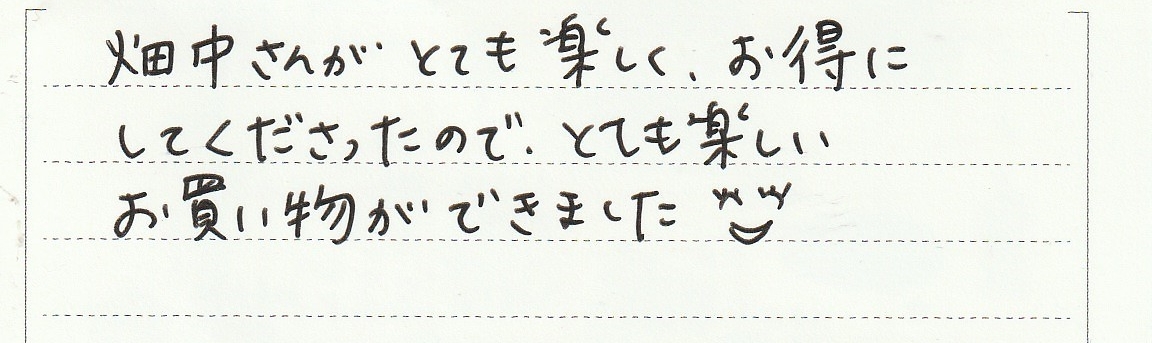 畑中さんがとても楽しく、お得に
してくださったので、とても楽しい
お買い物ができました